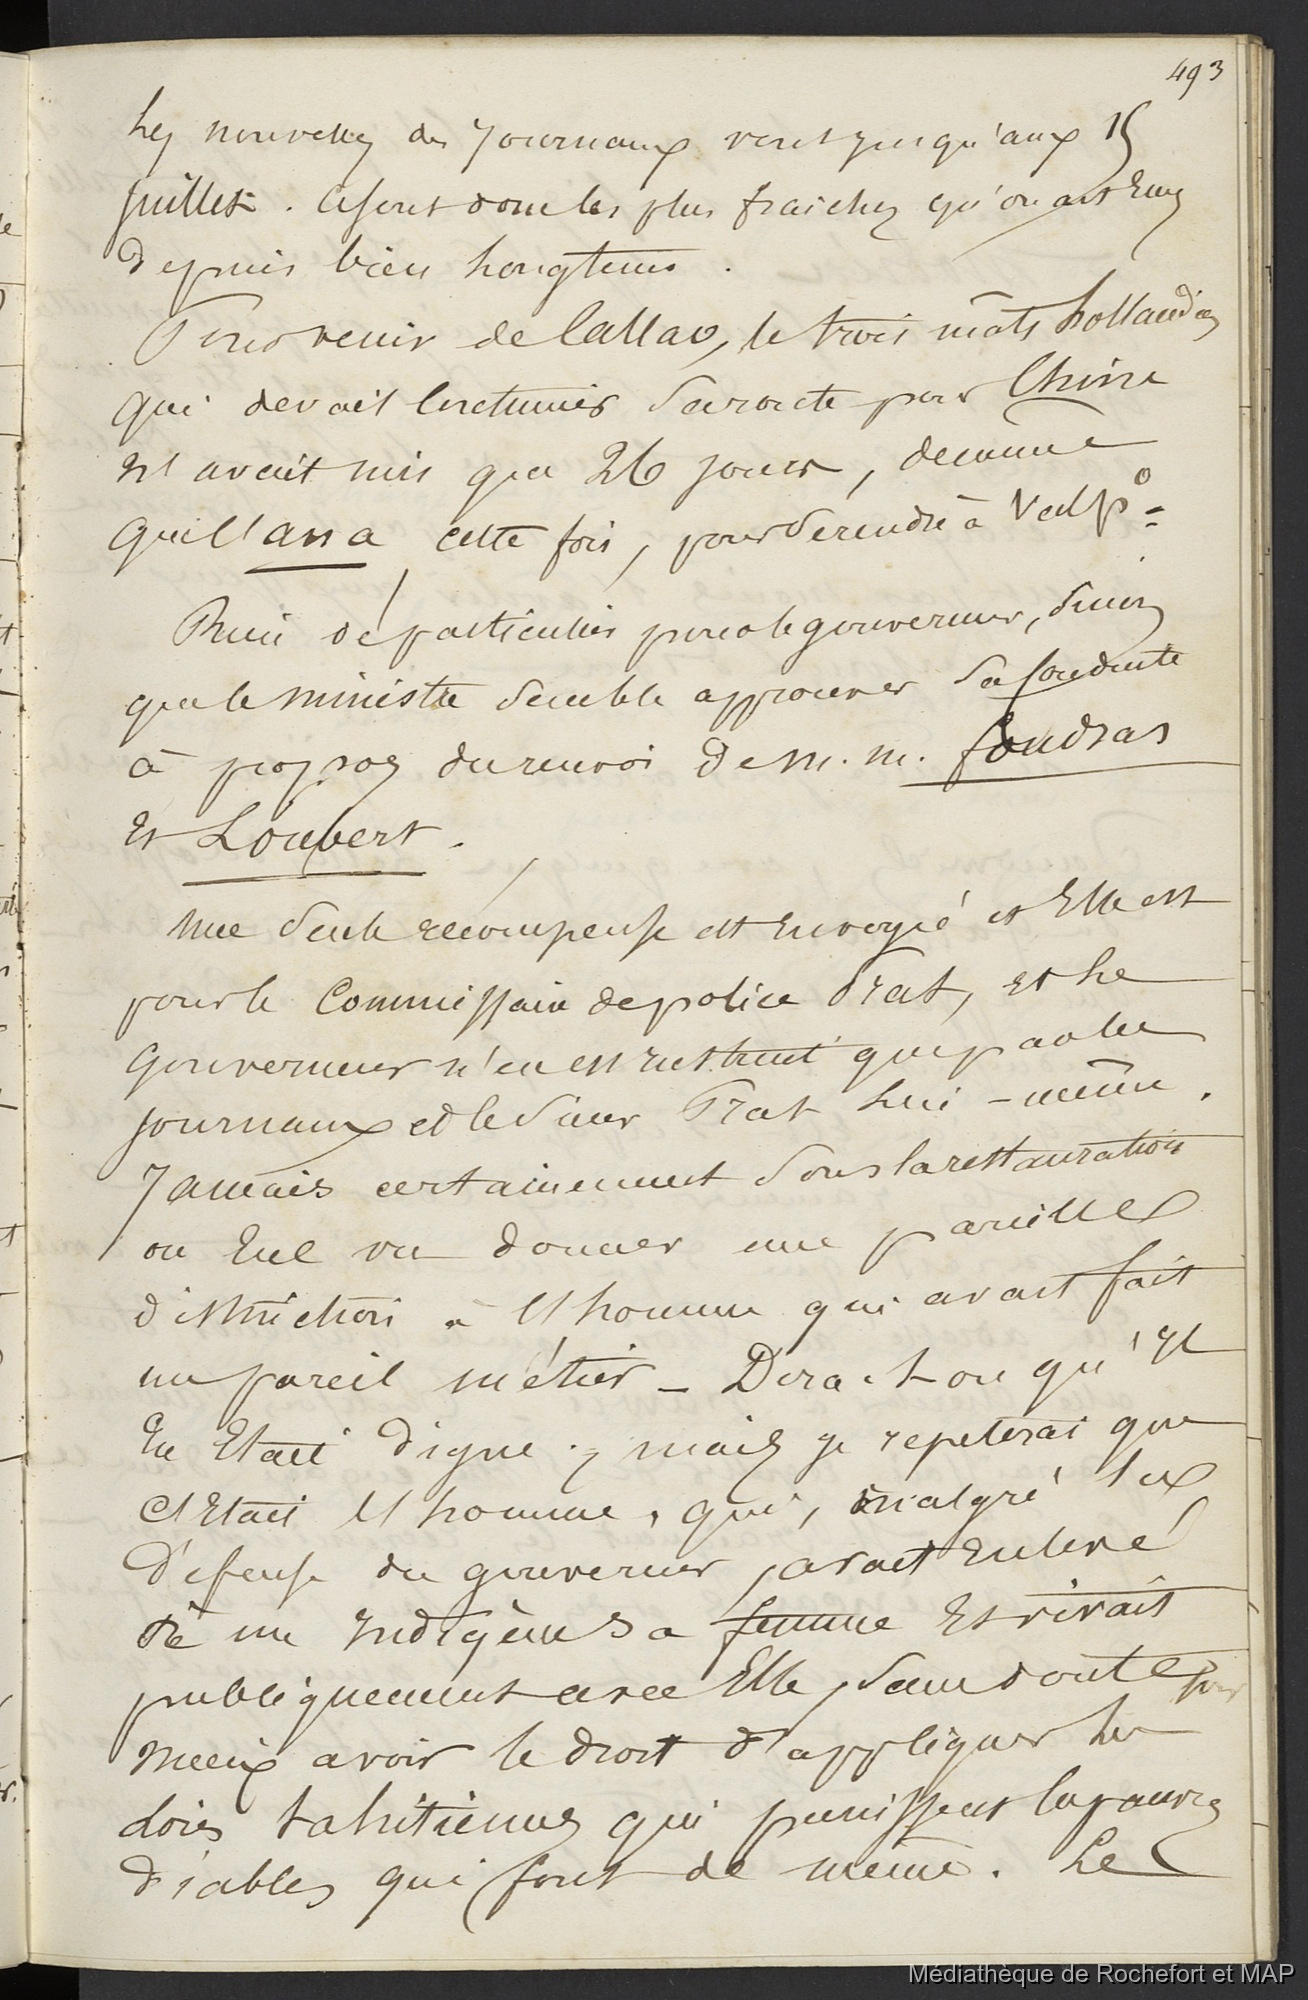 493
Les nouvelles des Journaux vont jusqu'aux 15
Juillet. Ce sont donc les plus fraiches qu'on ait Eues
depuis bien longtems.
Pour venir de Callao, le trois mâts hollandais
qui devait continuer sa route pour Chine
N'avait mis que 26 jours, de même
que l'ana cette fois, pour se rendre à Valpo =
Rien de particulier pour le gouverneur, sinon
que le ministre semble approuver sa conduite
à propos du renvoi de M. M. foudras
Et Loubert.
Une seule recompense est Envoyé et Elle est
pour le Commissaire de police Prat, et Le
Gouverneur n'en est instruit que par les
journaux et le sieur Prat lui-même.
Jamais certainement sous la restauration
on Eut vu donner une pareille
distinction à l'homme qui avait fait
un pareil métier - Dira-t-on qu'il
En Etait digne; mais je repeterai que
C'Etait l'homme, qui, malgré la
défense du gouverneur, avait Enlevé
à un Indigène sa femme Et vivait
publiquement avec Elle, sans doute pour
mieux avoir le droit d'appliquer les
Lois tahitiennes qui punissent les pauvres
diables qui font de même. Le
Médiathèque de Rochefort et MAP